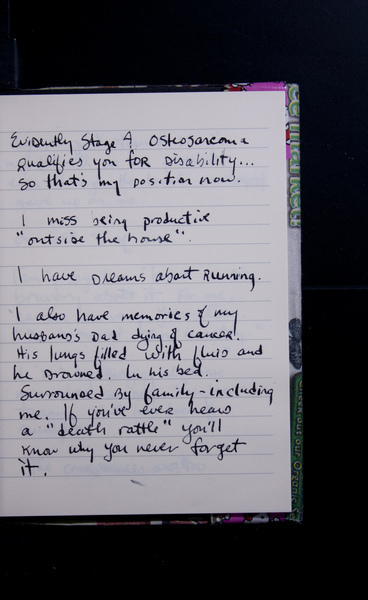 Evidently Stage 4 Osteosarcoma
qualifies you for Disability...
So that's my position now.
I miss being productive
"outside the house".
I have Dreams about Running.
I also have memories of my
husband's Dad dying of cancer.
His lungs filled with fluid and
he Drowned. In his bed.
Surrounded by family - including
me. If you've ever heard
a "death rattle" you'll
know why you never forget
it.